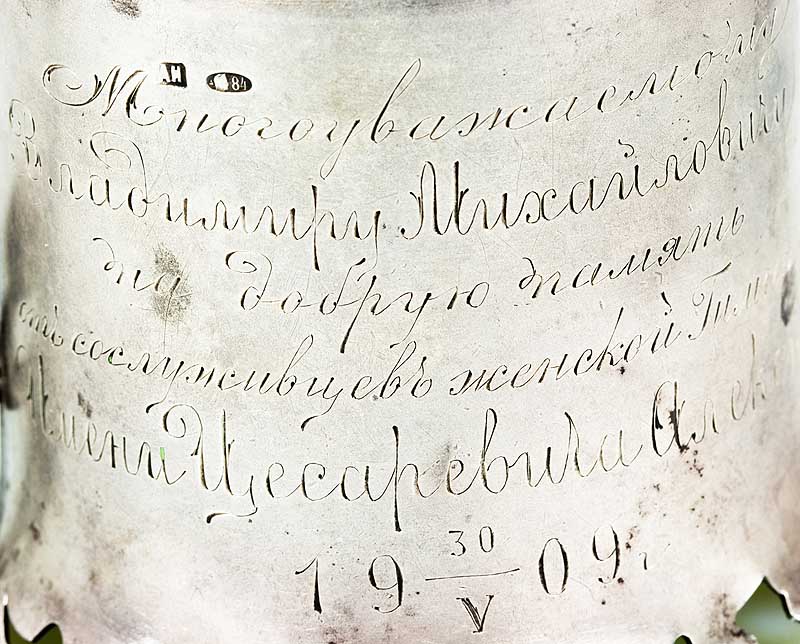 84
Многоуважаемому
Владимиру Михайловичу
на добрую память
отъ сослуживцевъ женской Гимн
Имени Цесаревича Алек
19 30/V 09 г.